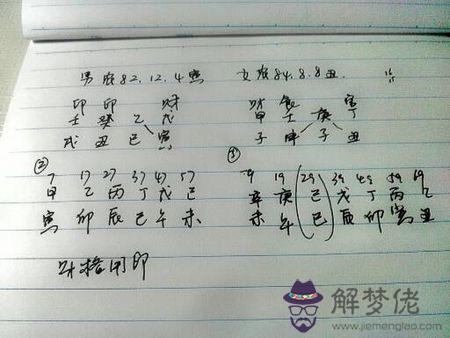 男 农 82.12.4 寅 女 农 84.8.8 丑.
印 印 财 财 食 官
壬 癸 乙 戊 甲 壬 庚 丁
戌 丑 巳 寅 子 申 子 丑
② ①
7 17 27 37 47 57 9 19 29 39 49 59 69
甲 乙 丙 丁 戊 己 辛 庚 己 戊 丁 丙 乙
寅 卯 辰 巳 午 未 未 午 巳 辰 卯 寅 丑
财格用印
解梦佬
www.jiemenglao.com